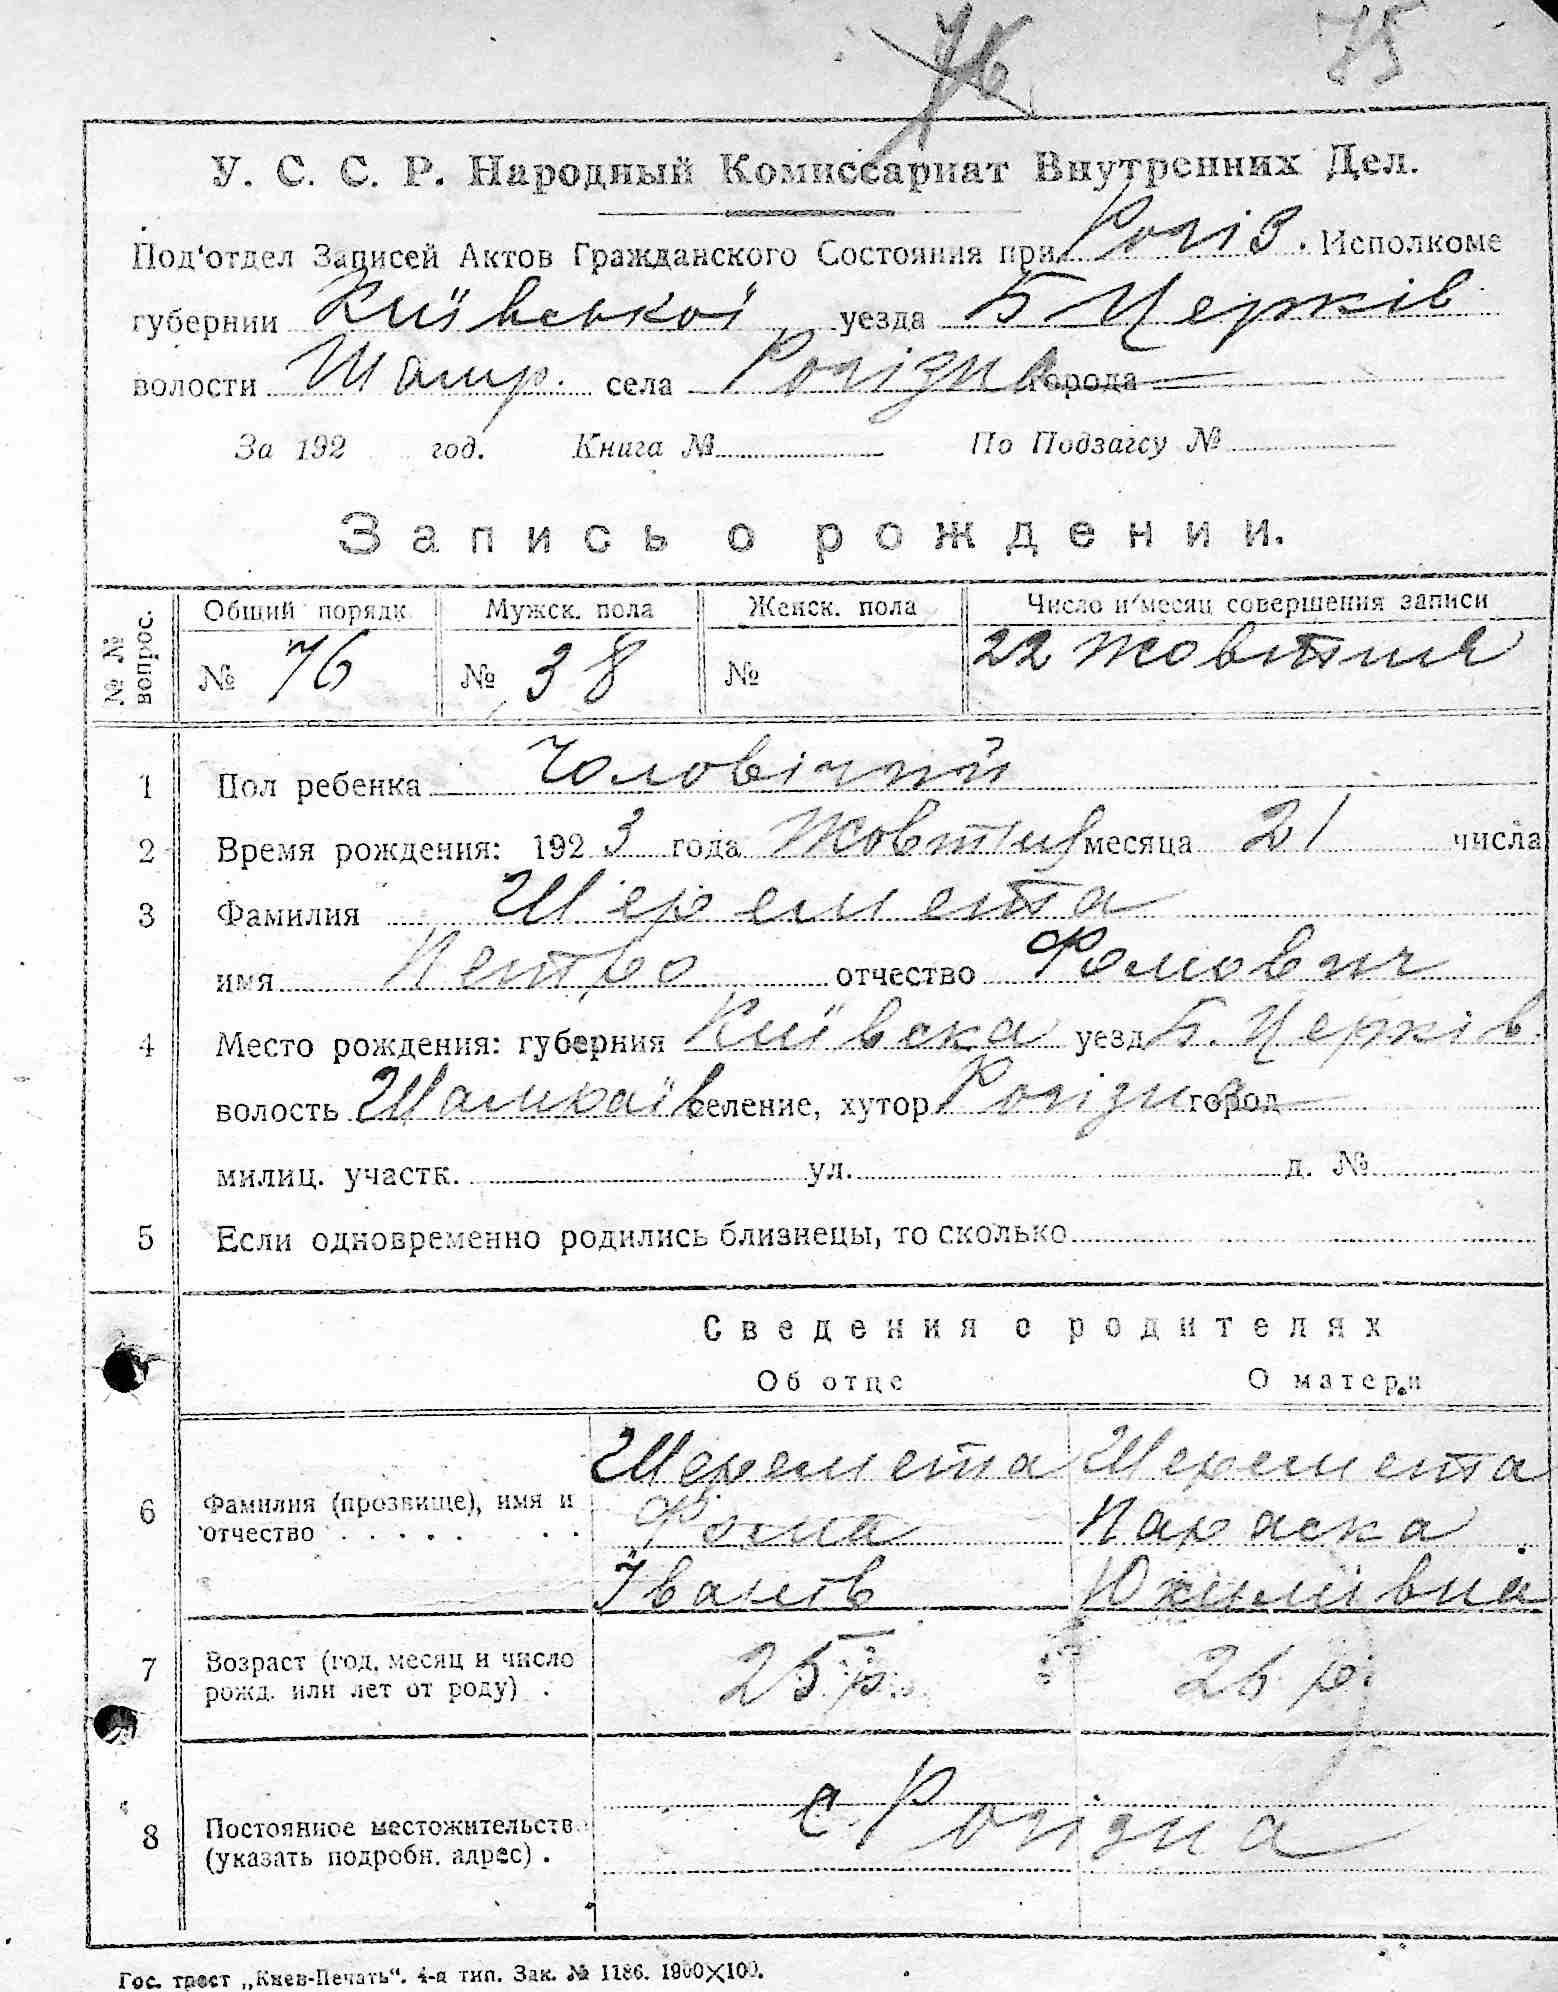 76 75
У. С. С. Р. Народный Комиссариат Внутренних Дел.
Под'отдел Записей Актов Гражданского Состояния при Рогіз. Исполкоме
губернии Київської уезда Б Церків
волости Шамр. села Рогізна города
За 192 год. Книга № По Подзагсу №
Запись о рождении.
№ № вопрос. Общий порядк. Мужск. пола Женск. пола Число и месяц совершения записи
№ 76 № 38 № 22 жовтня
1 Пол ребенка Чоловічий
2 Время рождения: 1923 года Жовтня месяца 21 числа
3 Фамилия Шеремета
имя Петро отчество Фомович
4 Место рождения: губерния Київска уезд Б. Церків
волость Шамраїв селение, хутор Рогізна город
милиц. участк. ул. д. №
5 Если одновременно родились близнецы, то сколько
Сведения о родителях
Об отце О матери
6 Фамилия (прозвище), имя и отчество Шеремета Шеремета
Фома Параска
Іванов Юхимівна
7 Возраст (год, месяц и число рожд. или лет от роду) . 25 р. 26 р.
8 Постоянное местожительств (указать подробн. адрес) . с. Рогізна
Гос. трест „Киев-Печать". 4-я тип. Зак. № 1186. 1900×100.